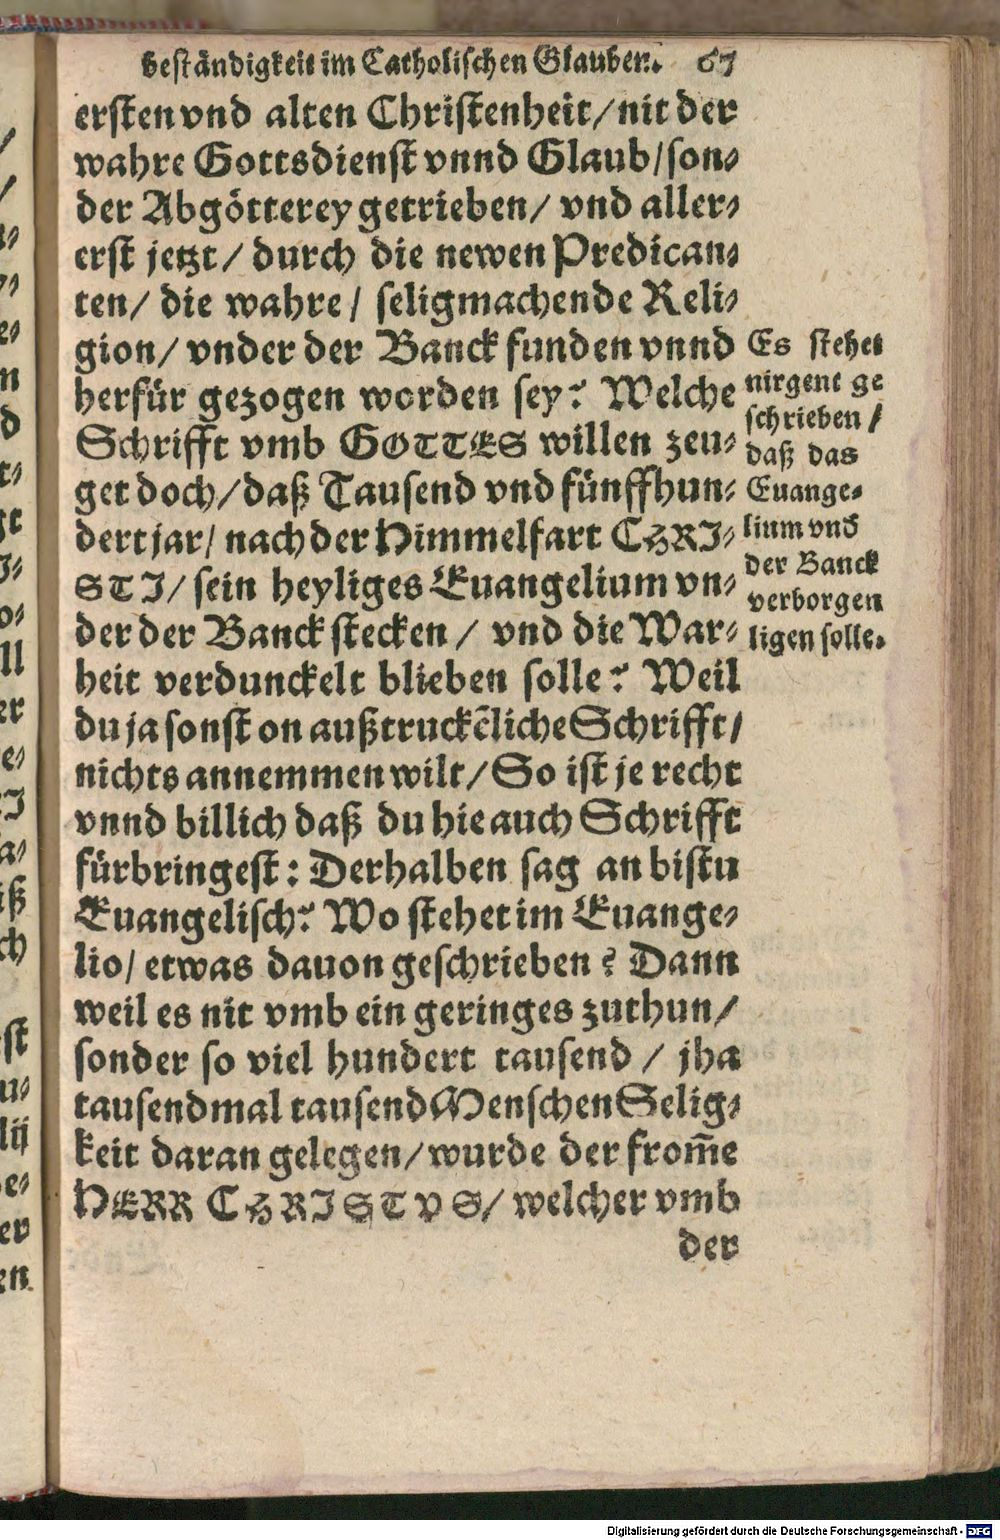 beständigkeit im Catholischen Glauben. 67
ersten vnd alten Christenheit/ nit der
wahre Gottsdienst vnnd Glaub/ son⸗
der Abgötterey getrieben/ vnd aller⸗
erst jetzt/ durch die newen Predican⸗
ten/ die wahre/ seligmachende Reli⸗
gion/ vnder der Banck funden vnnd
herfür gezogen worden sey? Welche
Schrifft vmb GOTTES willen zeu⸗
get doch/ daß Tausend vnd fünffhun⸗
dert jar/ nach der Himmelfart CHRI⸗
STI/ sein heyliges Euangelium vn⸗
der der Banck stecken/ vnd die War⸗
heit verdunckelt blieben solle? Weil
du ja sonst on außtruckēliche Schrifft/
nichts annemmen wilt/ So ist je recht
vnnd billich daß du hie auch Schrifft
fürbringest: Derhalben sag an bistu
Euangelisch? Wo stehet im Euange⸗
lio/ etwas dauon geschrieben? Dann
weil es nit vmb ein geringes zuthun/
sonder so viel hundert tausend/ jha
tausendmal tausend Menschen Selig⸗
keit daran gelegen/ wurde der from̄e
HERR CHRISTVS/ welcher vmb
der
Es stehet
nirgent ge
schrieben/
daß das
Euange⸗
lium vnd
der Banck
verborgen
ligen solle.
Digitalisierung gefördert durch die Deutsche Forschungsgemeinschaft - DFG